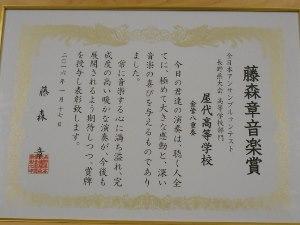 藤森章音楽賞
全日本アンサンブルコンテスト
長野県大会 高等学校部門
屋代高等学校
金管八重奏
今日の君達の演奏は、聴く人全
てに、極めて大きな感動と、深い
音楽の喜びを与えるものであり
ました。
常に音楽する心に満ち溢れ、完
成度の高い暖かな演奏が、今後も
展開されるよう期待しつつ、賞牌
を授与し表彰致します。
二〇一六年一月十七日
藤森 章